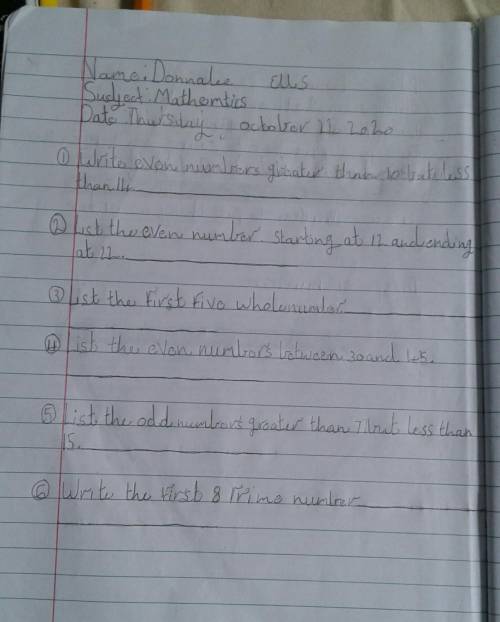 Name: Donnalee Ells
Sudject: Mathemtics
Date Thursday, october 22 2020
① Write even numbers greater than 10 but less
than 14.
② List the even number starting at 12 and ending
at 22.
③ List the First Five whole number.
④ List the even numbers between 30 and 45.
⑤ List the odd numbers greater than 7 but less than
15.
⑥ Write the First 8 Prime number